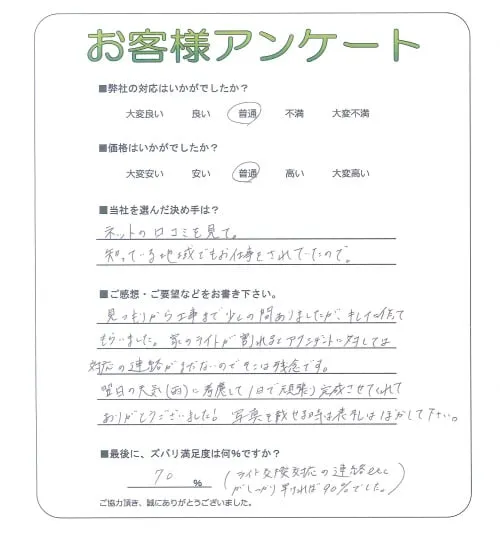 お客様アンケート
■弊社の対応はいかがでしたか？
大変良い 良い 普通 不満 大変不満
■価格はいかがでしたか？
大変安い 安い 普通 高い 大変高い
■当社を選んだ決め手は？
ネットの口コミを見て。
知っている地域でもお仕事をされていたので。
■ご感想・ご要望などをお書き下さい。
見つもりから工事まで少しの間ありましたが、キレイに仕て
もらいました。家のライトが割れるとアクシデントに対しては
対応の連絡がまだないのでそこは残念です。
翌日の天気(雨)に考慮して1日で頑張り完成させてくれて
ありがとうございました! 写真を載せる時は表札はぼかして下さい。
■最後に、ズバリ満足度は何%ですか？
70 % (ライト交換対応の連絡etc
がしっかり早ければ90%でした。)
ご協力頂き、誠にありがとうございました。